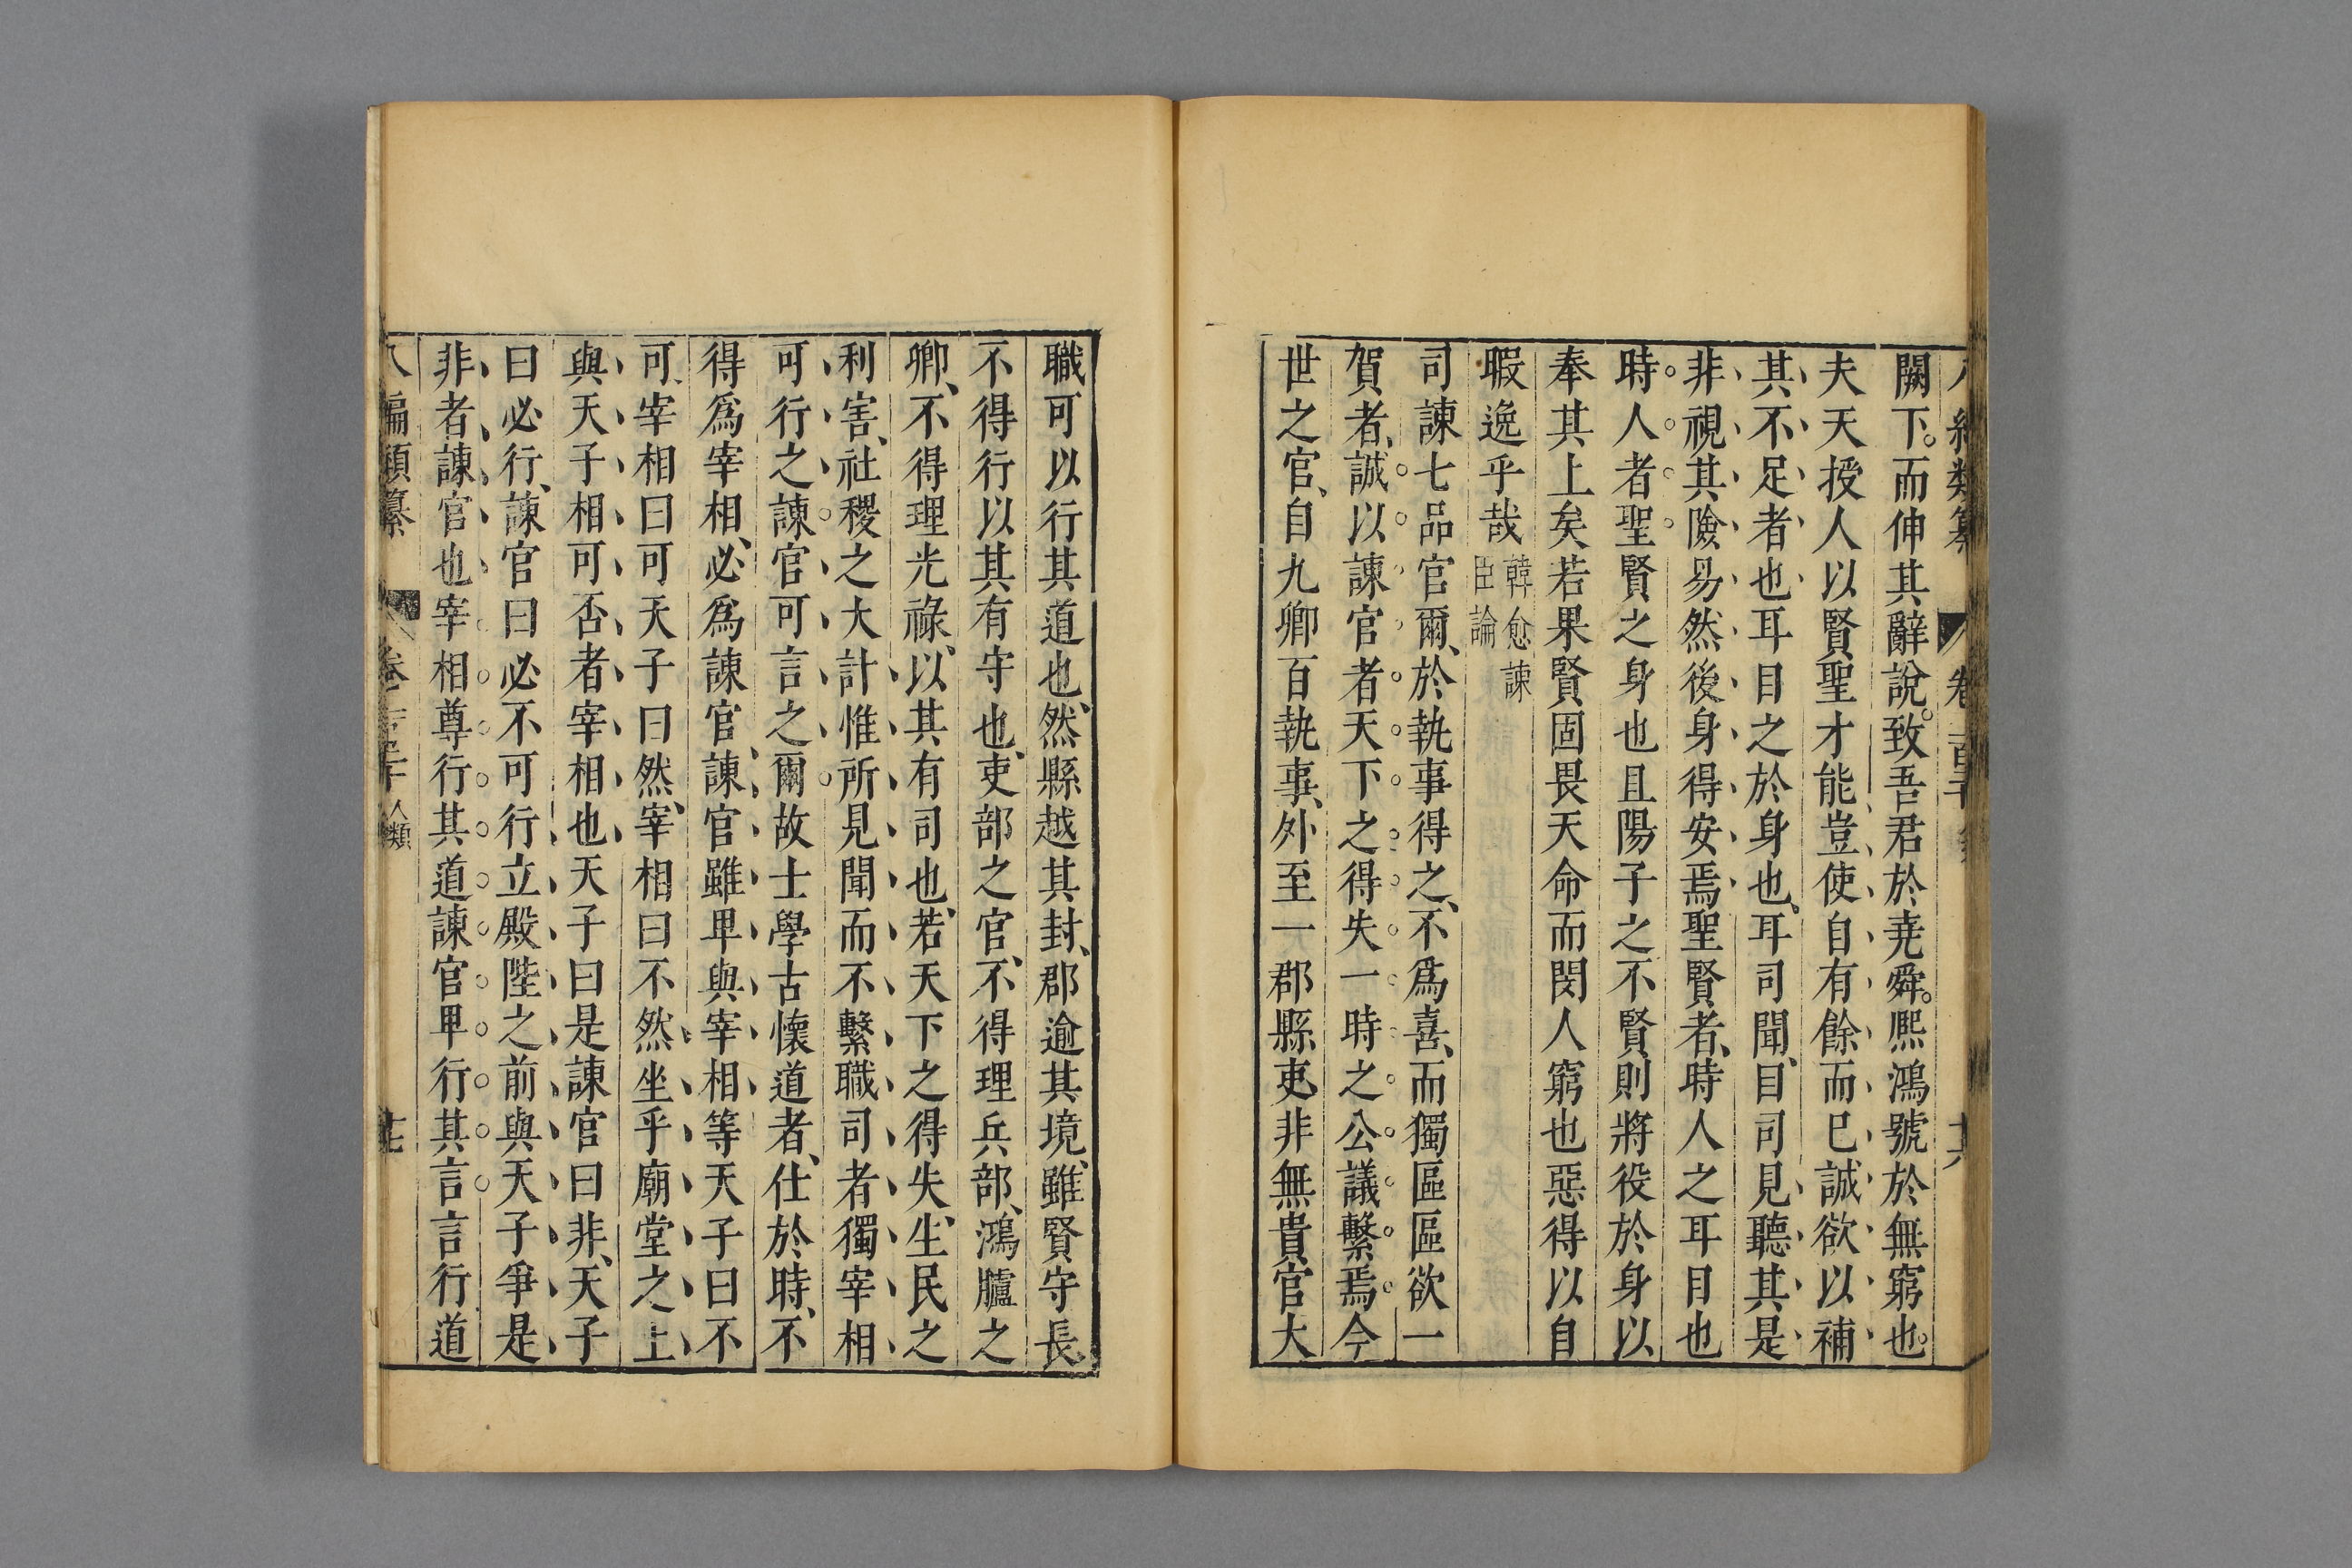 闕下。而伸其辭說。致吾君於堯舜。熈鴻號於無窮也。
夫天授人以賢聖才能豈使自有餘而巳誠欲以補
其不足者也耳目之於身也、耳司聞、目司見聽其是
非視其險易然後身得安焉聖賢者、時人之耳目也
時人者聖賢之身也且陽子之不賢則將役於身以
奉其上矣若果賢固畏天命而閔人窮也惡得以自
暇逸乎哉韓愈諫臣論
司諫七品官爾、於執事得之、不爲喜、而獨區區欲一
賀者、誠以諫官者天下之得失一時之公議繫焉今
世之官、自九卿百執事、外至一郡縣吏非無貴官大
職可以行其道也、然縣越其封、郡逾其境、雖賢守長
不得行以其有守也、吏部之官、不得理兵部、鴻臚之
卿、不得理光祿、以其有司也、若天下之得失、生民之
利害、社稷之大計惟所見聞而不繫職司者獨宰相
可行之諫官可言之爾故士學古懷道者、仕於時、不
得爲宰相、必爲諫官、諫官雖卑與宰相等天子曰不
可、宰相曰可天子曰然、宰相曰不然坐乎廟堂之上
與天子相可否者宰相也天子曰是諫官曰非、天子
曰必行、諫官曰必不可行立殿陛之前與天子爭是
非者諫官也宰相尊行其道諫官卑行其言言行道
八編類纂 卷 人類 十七